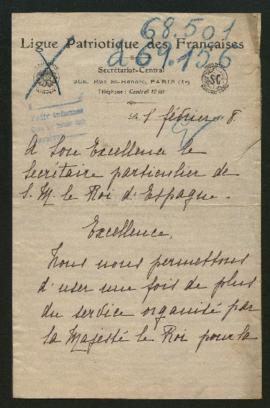 68.501
a 69.155
Ligue Patriotique des Françaises
Secrétariat-Central
368, Rue St-Honoré, PARIS (Ier)
Téléphone: Central
SC
1 février 8
A Son Excellence le
Secrétaire particulier de
S. M. le Roi d'Espagne.
Excellence,
Nous nous permettons
d'user une fois de plus
du service organisé par
Sa Majesté le Roi pour la